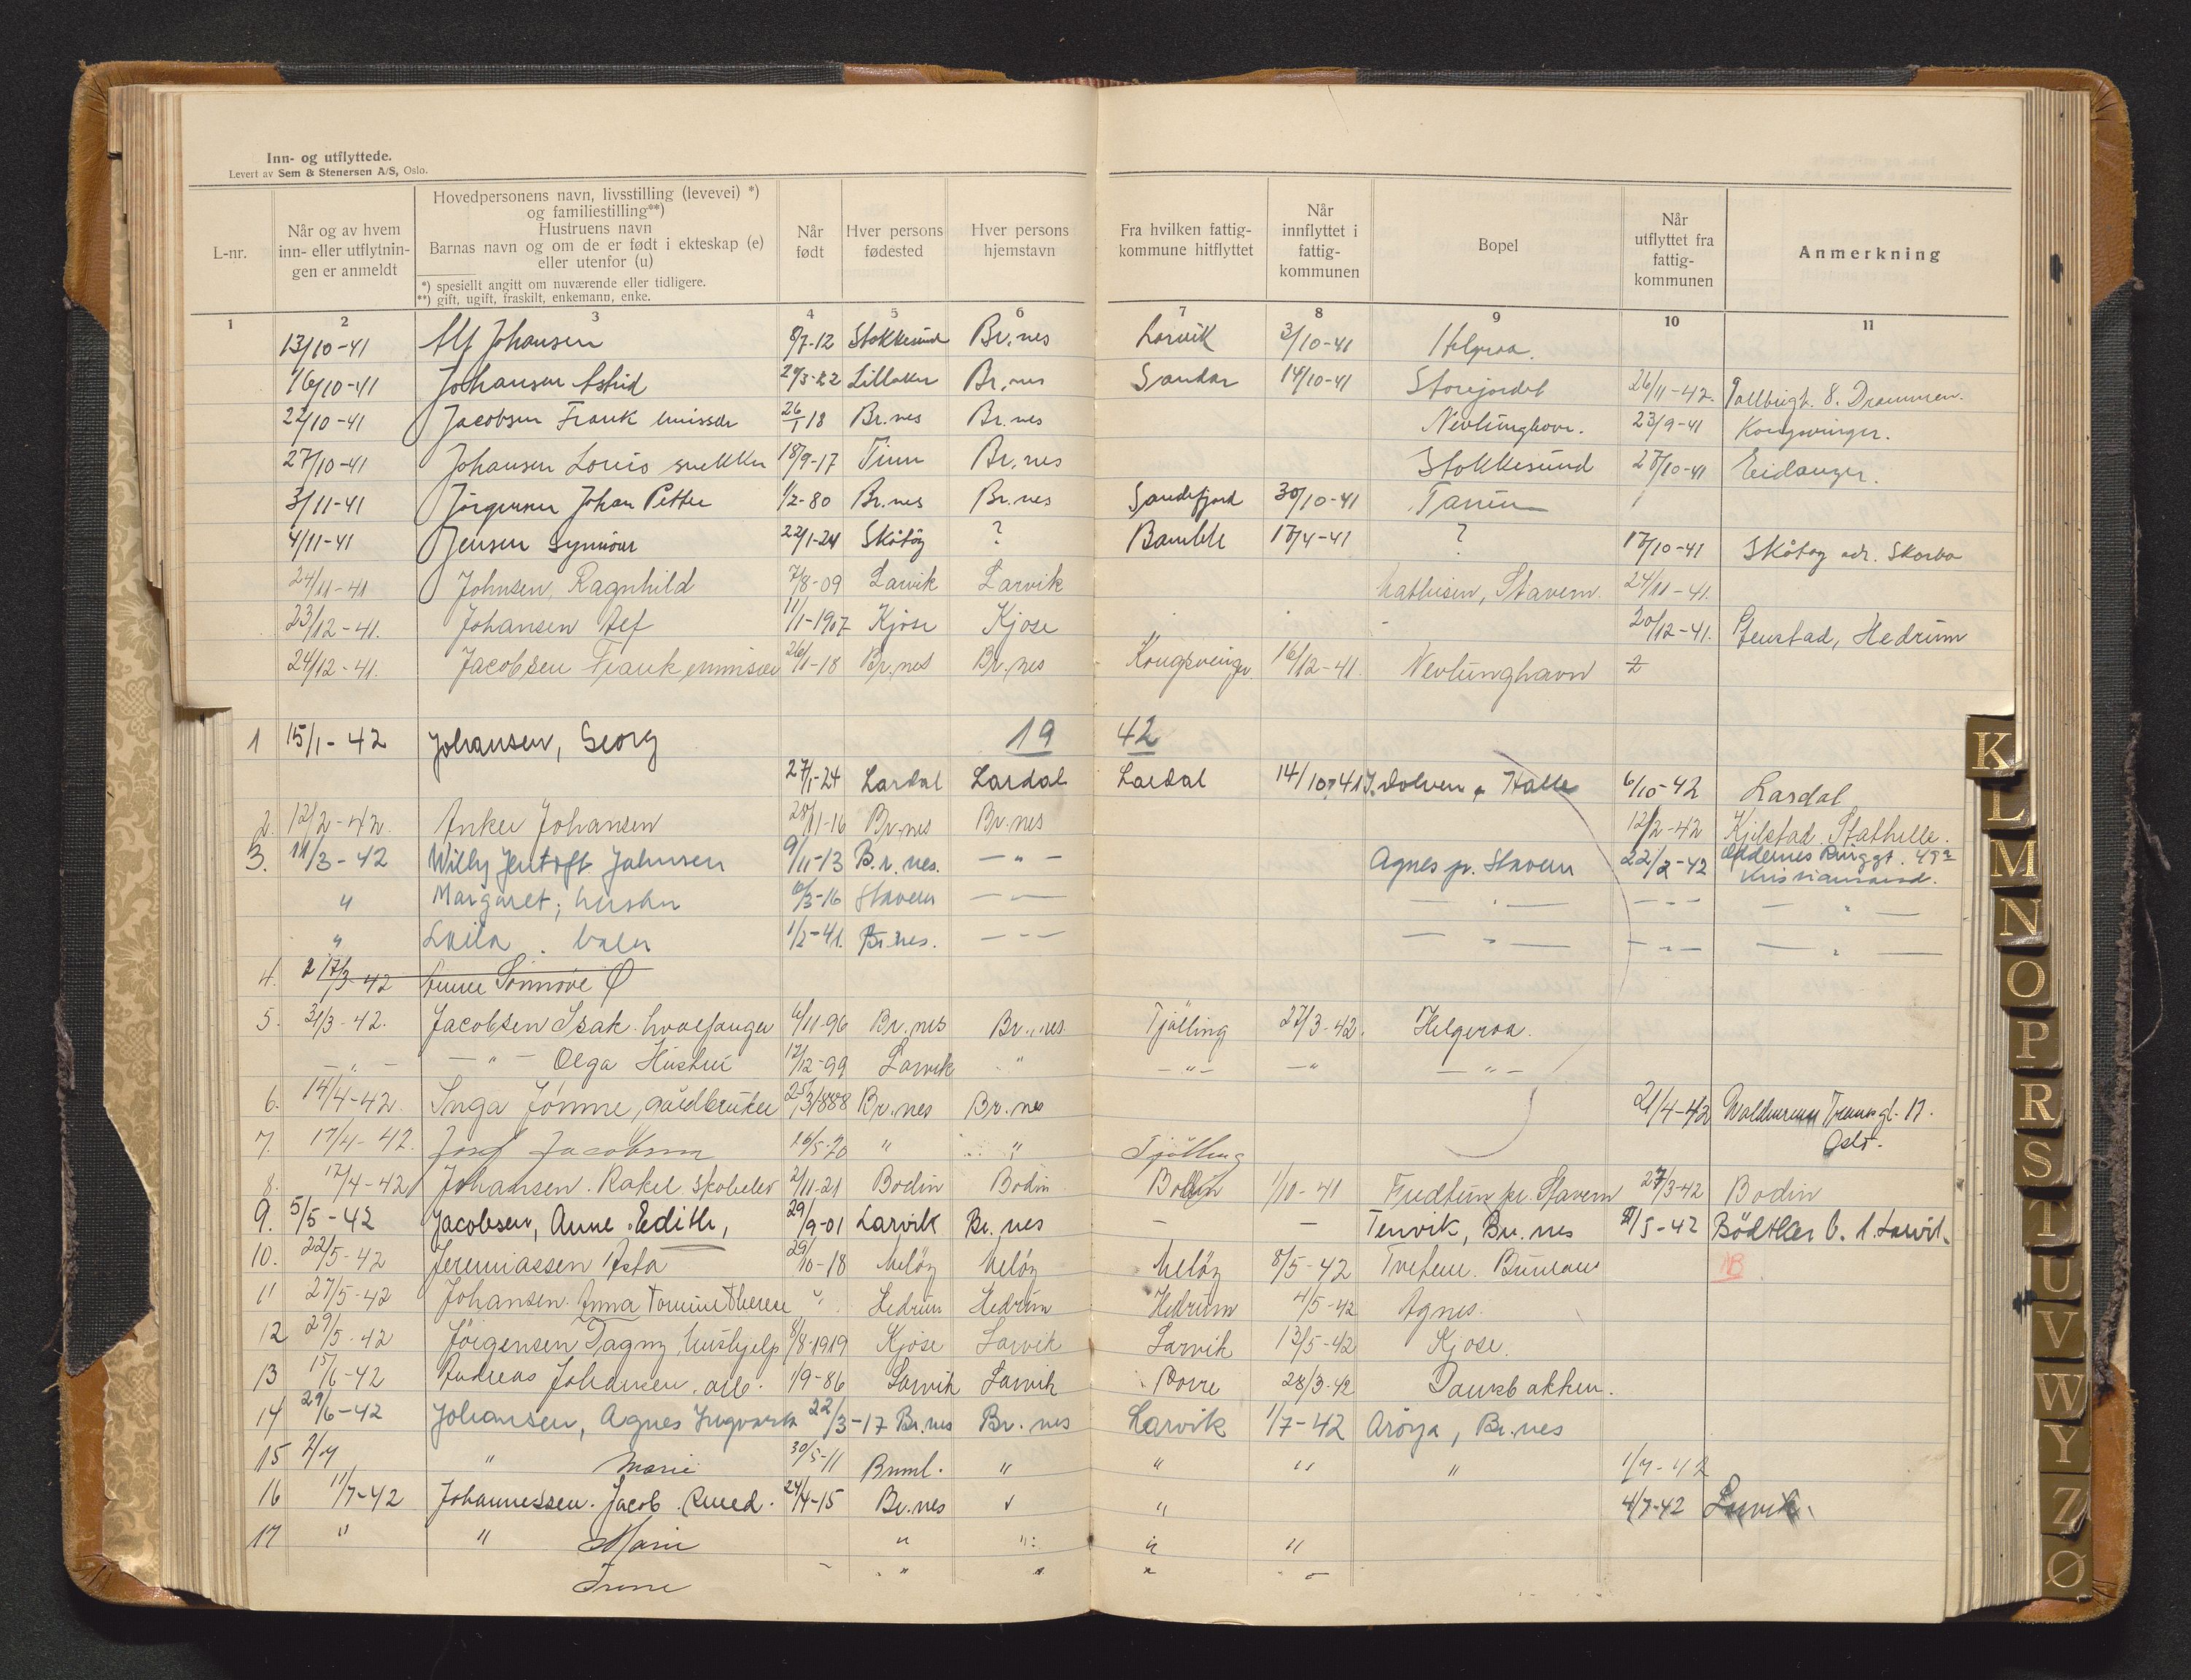 Inn- og utflyttede.
Levert av Sem & Stenersen A/S, Oslo.
L-nr. Når og av hvem inn- eller utflytnin-gen er anmeldt Hovedpersonens navn, livsstilling (levevei) *) og familiestilling**) Hustruens navn Barnas navn og om de er født i ekteskap (e) eller utenfor (u) *) spesiellt angitt om nuværende eller tidligere. **) gift, ugift, fraskilt, enkemann, enke. Når født Hver persons fødested Hver persons hjemstavn Fra hvilken fattig-kommune hitflyttet Når innflyttet i fattig-kommunen Bopel Når utflyttet fra fattig-kommunen Anmerkning
1 2 3 4 5 6 7 8 9 10 11
13/10-41 Alf Johansen 8/7-12 Stokkesund Br.nes Larvik 3/10-41 Helgroa.
16/10-41 Johansen Astrid 29/3-22 Br.nes Sandar 14/10-41 Storejordet 26/11-42. 8. Drammen.
22/10-41 Jacobsen Frank 26/1 18 Br.nes Br.nes Nevlunghavn. 23/9-41 Kongsvinger.
27/10-41 Johansen Louis snekker 18/9-17 Tinn Br.nes Stokkesund 27/10-41 Eidanger.
3/11-41 Jörgensen Johan Petter 1/2-80 Br.nes Br.nes Sandefjord 30/10-41 Tanum
4/11-41 Jensen Synnöve 22/1-24 Skåtöy ? Bamble 17/4-41 ? 17/10-41 Skåtøy adr.
24/11-41 Johnsen, Ragnhild 7/8-09 Larvik Larvik Mathisen, Stavern. 24/11-41.
23/12-41. Johansen 11/1-1907 Kjose Kjose 20/12-41. Stenstad, Hedrum
24/12-41. Jacobsen Frank 26/1-18 Br.nes Br.nes Kongsvinger 16/12-41. Nevlunghavn
1 15/1-42 Johansen, Georg 19 42
27/1-24 Lardal Lardal Lardal 14/10-41 Halle 6/10-42 Lardal
2. 12/2-42. Anker Johansen 28/11-16 Br.nes Br.nes 12/2-42 Stathelle.
3. 11/3-42 Willy Jentoft Johnsen 9/11-13 Br.nes. — " — Agnes pr. Stavern 22/2-42
Kristiansand.
" Margaret; hustru 10/3-16 Stavern — —
" Laila 1/2-41. Br.nes. — —
4. 17/3-42 Sönnöve
5. 31/3-42. Jacobsen Isak hvalfanger 6/11-96 Br.nes Br.nes. Tjølling 27/3-42. Helgeroa.
— " — — " — Olga Hustru 12/12-99 Larvik " — " — — " — " —
6. 14/4-42. Inga Jönne, gårdbruker 25/3 1888 Br.nes Br.nes 21/4-42 gt. 17.
Oslo.
7. 17/4-42. Josef Jacobsen 16/5-20 " " Tjölling
8. 17/4-42 Johansen. Rakel skoleelev 2/11-21 Bodin Bodin Bodin 1/10-41 pr. Stavern 27/3-42 Bodin
9. 5/5-42 Jacobsen, Anne Edith, 29/9-01 Larvik Br.nes — — Tenvik, Br.nes /5-42 Larvik.
10. 22/5-42 Jeremiassen Asta 29/10-18 Meløy Meløy Meløy 8/5-42 NB
11 27/5-42 Johansen. Anna " Hedrum Hedrum Hedrum 4/5-42 Agnes.
12 29/5-42 Jörgensen Dagny, hushjelp 8/8-1919 Kjose Larvik Larvik 13/5-42 Kjose.
13 15/6-42 Andreas Johansen, arb. 1/9-86 Larvik Larvik Borre 28/3-42
14 29/6-42 Johansen, Agnes 22/3-17 Br.nes Br.nes Larvik 1/7-42 Arøya, Br.nes
15 2/7 " Marie 30/5-11 Brunl. " " " " 1/7-42
16 11/7-42 Johannessen. Jacob 24/4-15 Br.nes " 4/7-42 Larvik
17 " " Marie " " " "
Irene " " "
K
L
M
N
O
P
R
S
T
U
V
W
Y
Z
Ø